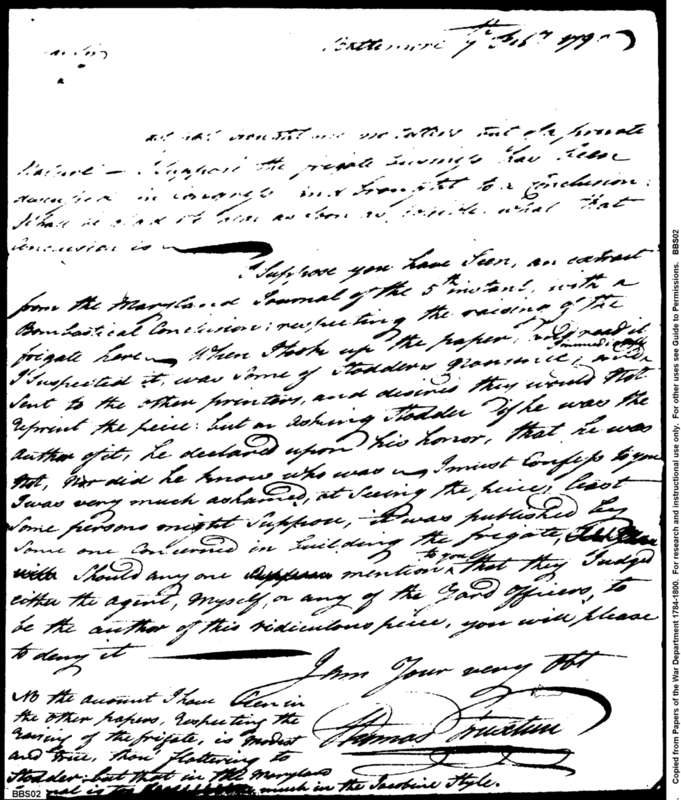 Dear Sir
Baltimore 7th Feby 179
private
Nature — I suppose the frigate business has been
discussed in Congress and brought to a Conclusion:
I shall be glad to as soon as possible what that
Conclusion is
I suppose you have Seen, an extract
from the Maryland Journal of the 5th instant, with a
Bombastical Conclusion: respecting the raising of the
frigate here. When I took up the paper, read it
I suspected it, was Some of Stodders Nonsense; immediately
Sent to the other printers, and desired they would Not
reprint the peice: but on asking Stodder if he was the
author of it, he declared upon his honor, that he was
Not, Nor did he know who was — I must Confess to you
I was very much ashamed, at Seeing the peice, least
Some persons might Suppose, it was published by
Some one Concerned in building the frigate,
Should any one mention to you that they Judged
either the agent, Myself, or any of the Yard Officers, to
be the author of this ridiculous peice, you will please
to deny it
I am Your very Obt
Thomas Truxtun
the account I have Seen in
the other papers, respecting the
raising of the frigate, is Modest
and true, than flattering to
Stodder: but that in the Maryland
much in the Jacobine Style.
BBS02
Copied from Papers of the War Department 1784-1800. For research and instructional use only. For other uses see Guide to Permissions. BBS02